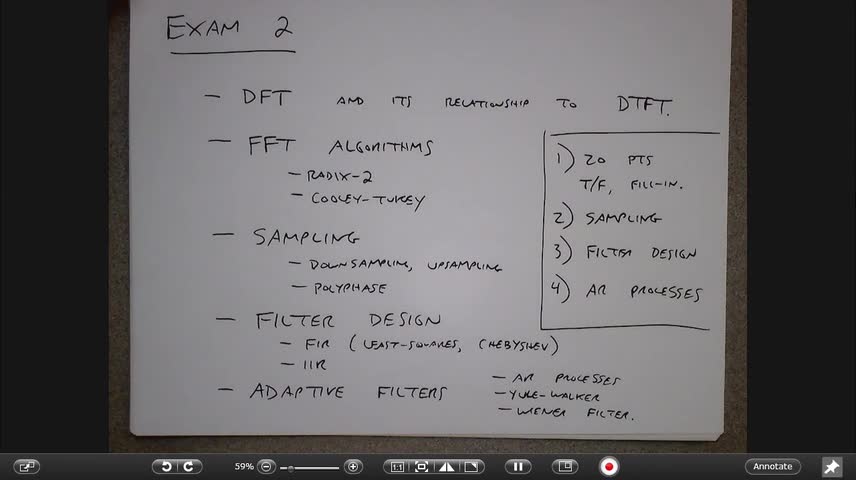 EXAM 2
- DFT AND ITS RELATIONSHIP TO DTFT.
- FFT ALGORITHMS
- RADIX-2
- COOLEY-TUKEY
- SAMPLING
- DOWNSAMPLING, UPSAMPLING
- POLYPHASE
- FILTER DESIGN
- FIR (LEAST-SQUARES, CHEBYSHEV)
- IIR
- ADAPTIVE FILTERS
- AR PROCESSES
- YULE-WALKER
- WIENER FILTER.
1) 20 PTS
T/F, FILL-IN.
2) SAMPLING
3) FILTER DESIGN
4) AR PROCESSES
59%
1:1
Annotate